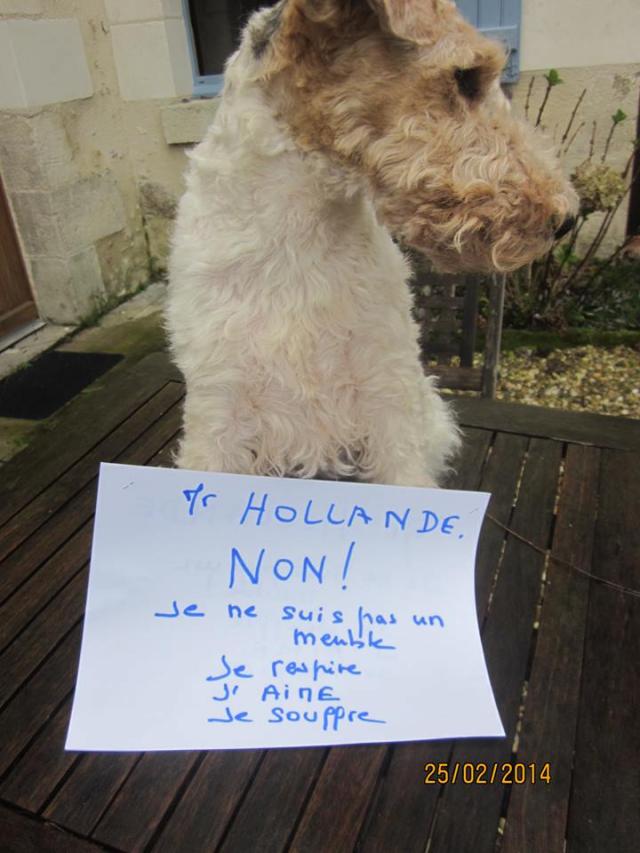 Mr HOLLANDE.
NON!
Je ne suis pas un
meuble
Je respire
J'AiME
Je souffre
25/02/2014